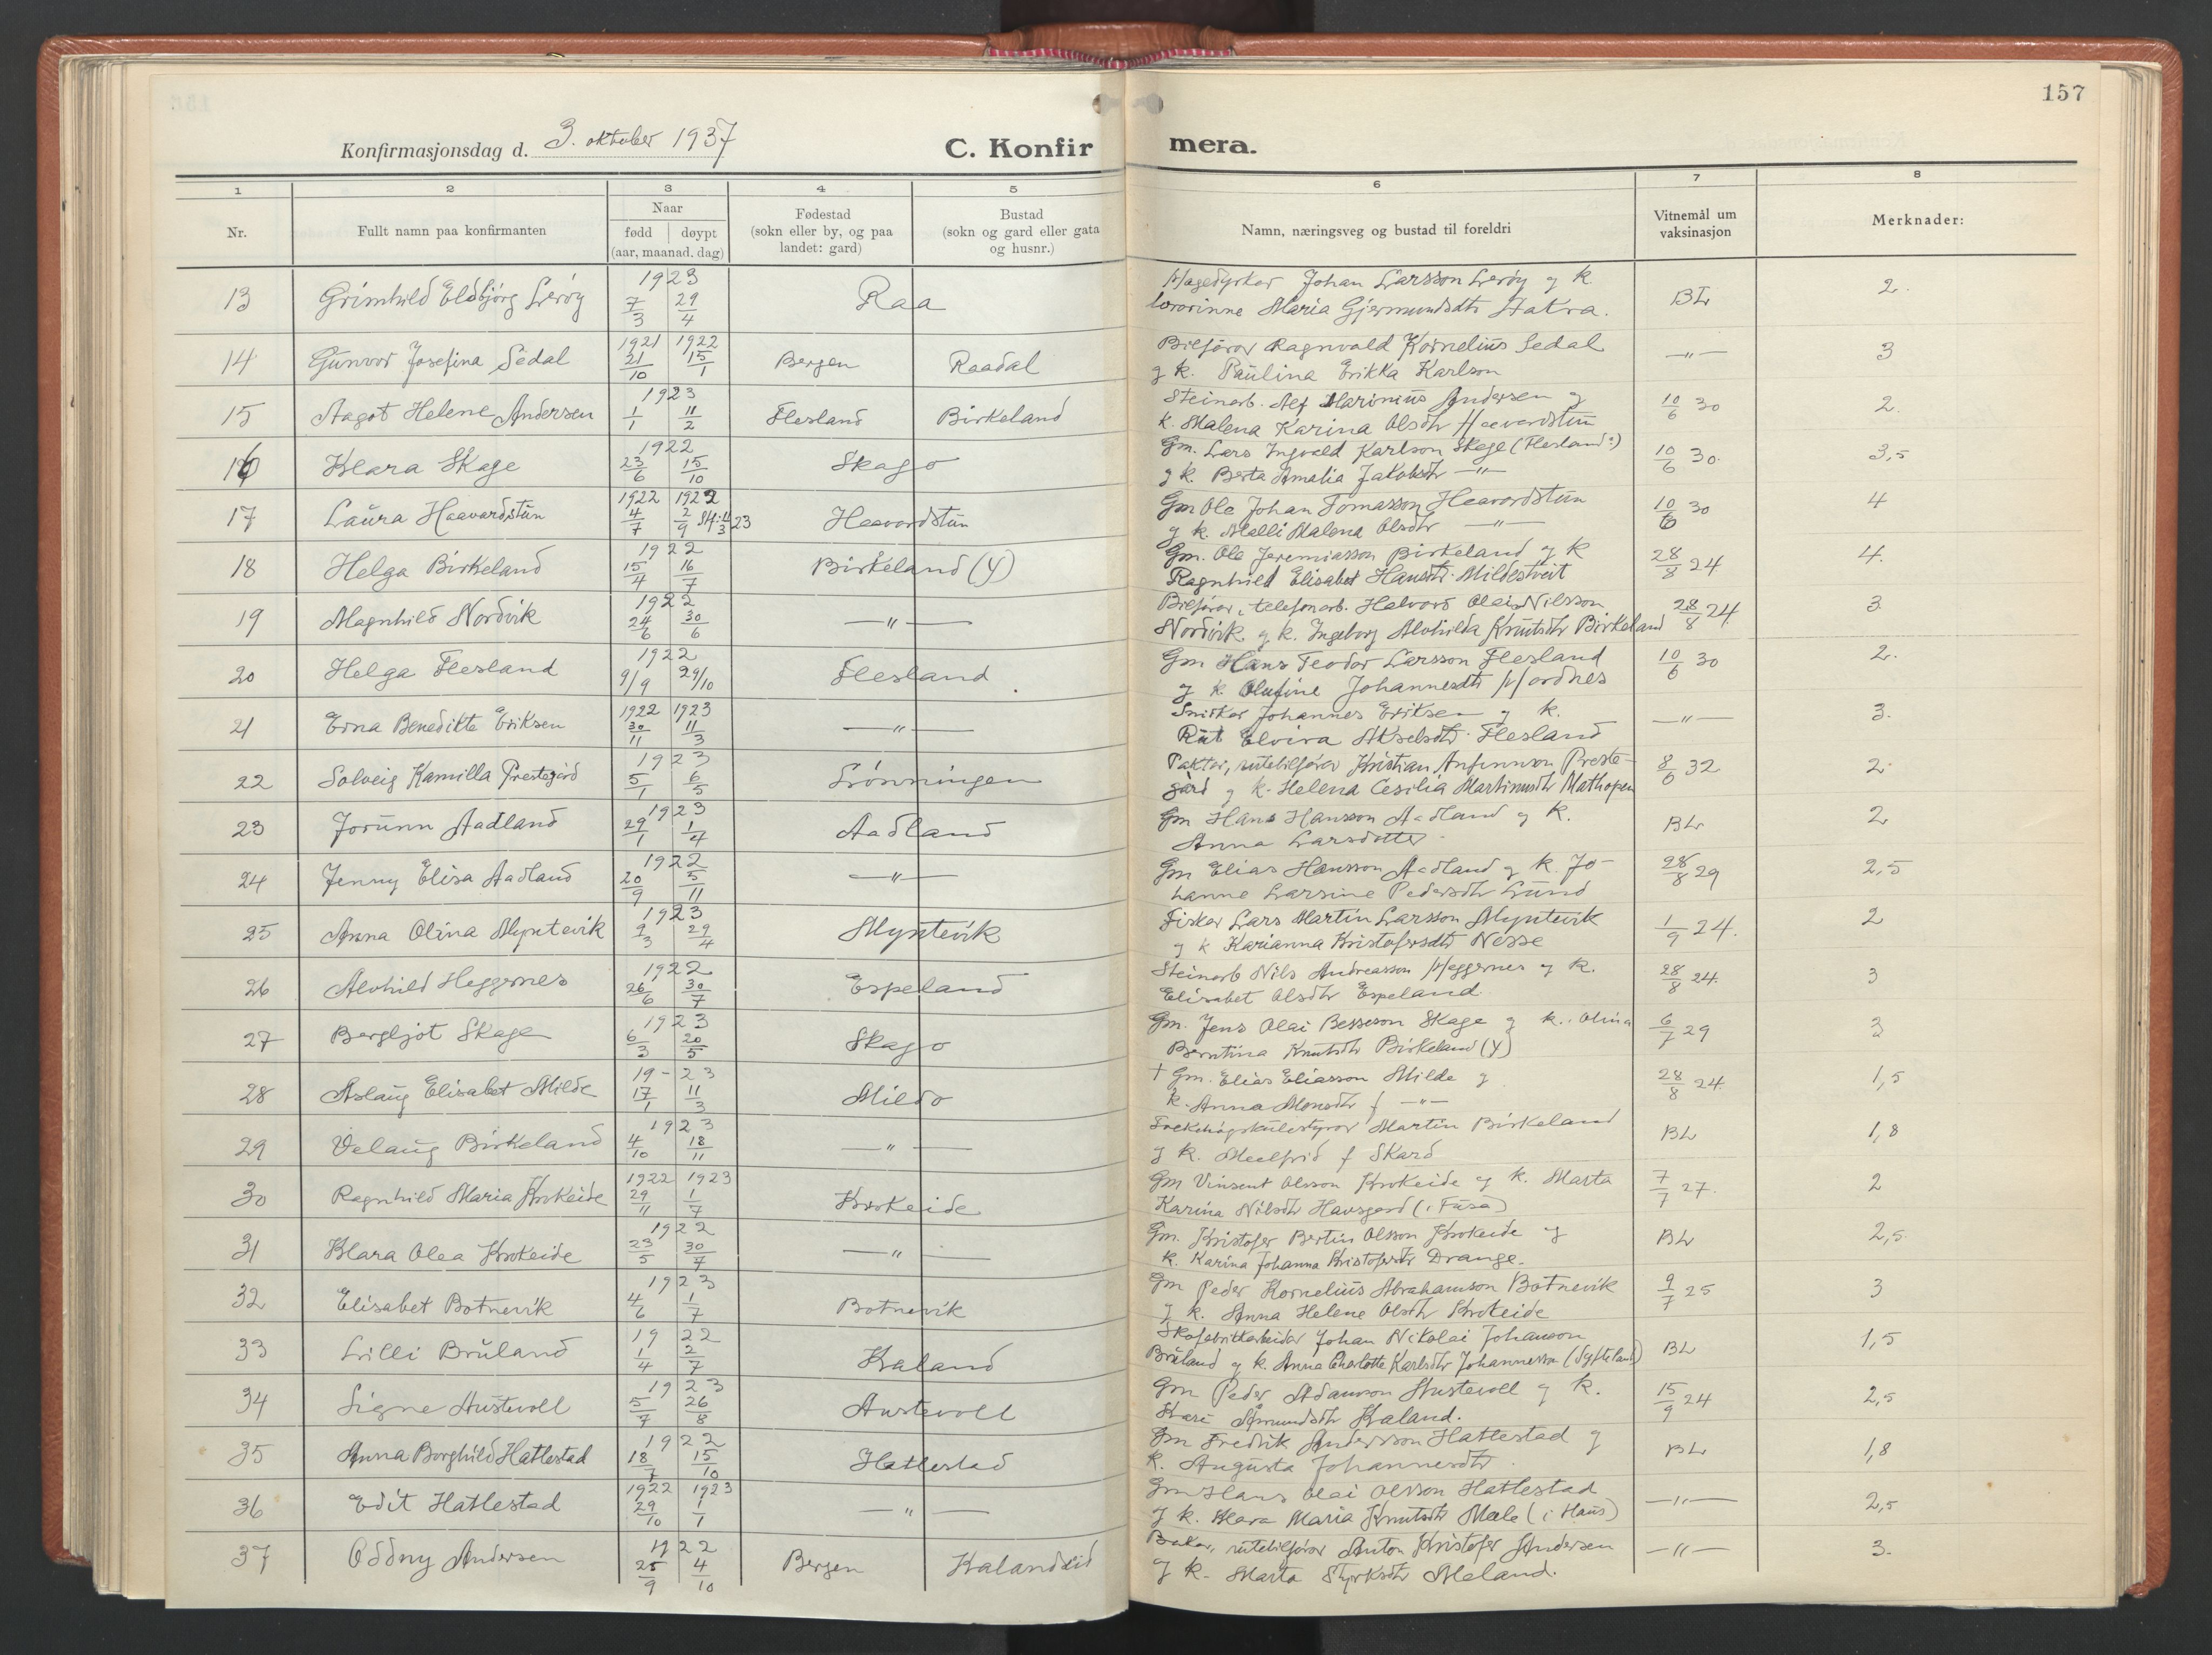 157
Konfirmasjonsdag d. 3. oktober 1937 C. Konfir mera.
1 2 3 4 5 6 7 8
Nr. Fullt namn paa konfirmanten Naar fødd døypt (aar, maanad, dag) Fødestad (sokn eller by, og paa landet: gard) Bustad (sokn og gard eller gata og husnr.) Namn, næringsveg og bustad til foreldri Vitnemål um vaksinasjon Merknader:
13 Grimhild Eldbjørg Lerøy 1923 7/3 29/4 Raa Hagedyrkar Johan Larsson Lerøy og k. BL 2.
lærarinne Maria Gjermundsdtr Aakra.
14 Gunvor Josefina Sedal 1921 21/10 1922 15/1 Bergen Raadal Bilførar Ragnvald Kornelius Sedal —"— 3
og k. Paulina Erikka Karlson
15 Aagot Helene Andersen 1923 1/1 11/2 Flesland Birkeland Steinarb. Alf Marinius Andersen og 10/6 30 2.
k. Malena Karina Olsdtr Haavardstun
16 Klara Skage 1922 23/6 15/10 Skage Gm. Lars Ingvald Karlson Skage (Flesland?) 10/6 30. 3,5
og k. Berta Amalia Jakobsdtr —"—
17 Laura Haavardstun 1922 4/7 1922 2/9 St. 4/3 23 Haavardstun Gm Ole Johan Tomasson Haavardstun 10/6 30 4
og k. Malli Malena Olsdtr —"—
18 Helga Birkeland 1922 15/4 16/7 Birkeland (Y) Gm. Ole Jeremiasson Birkeland og k 28/8 24 4.
Ragnhild Elisabet Hansdtr. Mildestveit
19 Magnhild Nordvik 1922 24/6 30/6 —"— Bilførar, telefonarb. Halvard Olai Nilsson 28/8 24 3
Nordvik og k. Ingeborg Alvhilda Knutsdtr Birkeland
20 Helga Flesland 1922 9/9 29/10 Flesland. Gm Hans Teodor Larsson Flesland 10/6 30 2.
og k. Olufine Johannesdtr Hordnes
21 Erna Benedikte Eriksen 1922 30/11 1923 11/3 —"— Snikkar Johannes Eriksen og k. —"— 3.
Rut Elvira Akselsdtr. Flesland
22 Solveig Kamilla Prestegård 1923 5/1 6/5 Lrønningen Paktar, rutebilførar Kristian Anfinnson Preste- 8/6 32 2.
gård og k. Helena Cesilia Martinusdtr Mathopen
23 Jorunn Aadland 1923 29/1 1/4 Aadland Gm Hans Hansson Aadland og k. BL 2
Anna Larsdotter
24 Jenny Elisa Aadland 1922 20/9 5/11 —"— Gm Elias Hansson Aadland og k. Jo- 28/8 29 2,5
hanne Larsine Pedersdtr Lund
25 Anna Olina Myntevik 1923 9/3 29/4 Myntevik Fiskar Lars Martin Larsson Myntevik 1/9 24. 2
og k Karianna Kristofersdtr Nesse
26 Alvhild Heggernes 1922 26/6 30/7 Espeland Steinarb Nils Andreasson Heggernes og k. 28/8 24. 3
Elisabet Olsdtr Espeland.
27 Bergljot Skage 1923 6/3 20/5 Skage Gm. Jens Olai Besseson Skage og k. Olina 6/7 29 3
Berntina Knutsdtr Birkeland (Y)
28 Aslaug Elisabet Milde 19-23 17/1 11/3 Milde † Gm. Elias Eliasson Milde og 28/8 24. 1,5
k. Anna Monsdtr f —"—
29 Velaug Birkeland 1923 4/10 18/11 —"— Folkehøgskulestyrar Martin Birkeland BL 1,8
og k. Maalfrid f Skard
30 Ragnhild Maria Krokeide 1922 29/11 1923 1/7 Krokeide Gm Vinsent Olsson Krokeide og k. Marta 7/7 27. 2
Karina Nilsdtr Havsgard (i Fusa)
31 Klara Olea Krokeide 1922 23/5 30/7 —"— Gm. Kristofer Bertin Olsson Krokeide og BL 2,5.
k. Karina Johanna Kristofersdtr Drange.
32 Elisabet Botnevik 1923 4/6 1/7 Botnevik Gm Peder Kornelius Abrahamson Botnevik 9/7 25 3
og k. Anna Helene Olsdtr Krokeide
33 Lilli Bruland 1922 1/4 2/7 Kaland Skofabrikkarbeidar Johan Nikolai Johanson BL 1,5
Bruland og k. Anna Charlotte Karlsdtr Johannessen (Syfteland)
34 Signe Austevoll 1923 5/7 26/8 Austevoll Gm Peder Adamson Austevoll og k. 15/9 24 2,5
Kari Åmundsdtr Kaland.
35 Anna Borghild Hatlestad 1922 18/7 15/10 Hatlestad Gm Fredrik Andersson Hatlestad og BL 1,8
k. Augusta Johannesdtr.
36 Edit Hatlestad 1922 29/10 1923 1/1 —"— Gm Hans Olai Olsson Hatlestad —"— 2,5
og k. Klara Maria Knutsdtr Mæle (i Haus)
37 Oddny Andersen 1922 25/9 4/10 Bergen Kalandseid Bakar, rutebilførar Anton Kristofer Andersen —"— 3.
og k. Marta Styrksdtr Meland.